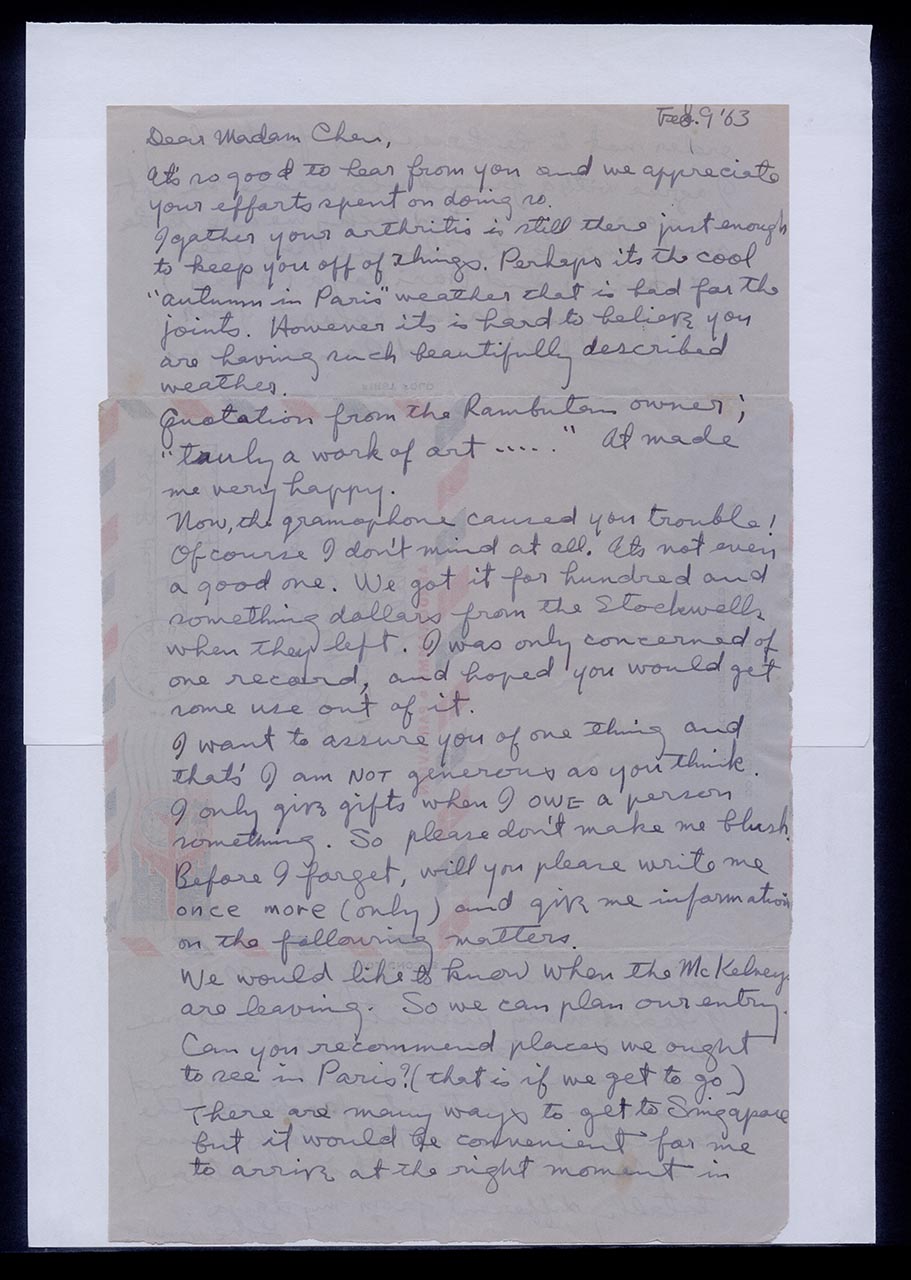 Feb. 9 '63
Dear Madam Chen,
It's so good to hear from you and we appreciate
your efforts spent on doing so.
I gather your arthritis is still there just enough
to keep you off of things. Perhaps its the cool
"autumn in Paris" weather that is bad for the
joints. However its is hard to believe you
are having such beautifully described
weather.
Quotation from the Rambutan owner;
"truly a work of art ....." It made
me very happy.
Now, the gramophone caused you trouble!
Of course I don't mind at all. Its not even
a good one. We got it for hundred and
something dollars from the Stockwells
when they left. I was only concerned of
one record, and hoped you would get
some use out of it.
I want to assure you of one thing and
that's I am NOT generous as you think.
I only give gifts when I OWE a person
something. So please don't make me blush.
Before I forget, will you please write me
once more (only) and give me information
on the following matters.
We would like to know when the McKelveys
are leaving. So we can plan our entry.
Can you recommend places we ought
to see in Paris? (that is if we get to go)
There are many ways to get to Singapore
but it would be convenient for me
to arrive at the right moment in